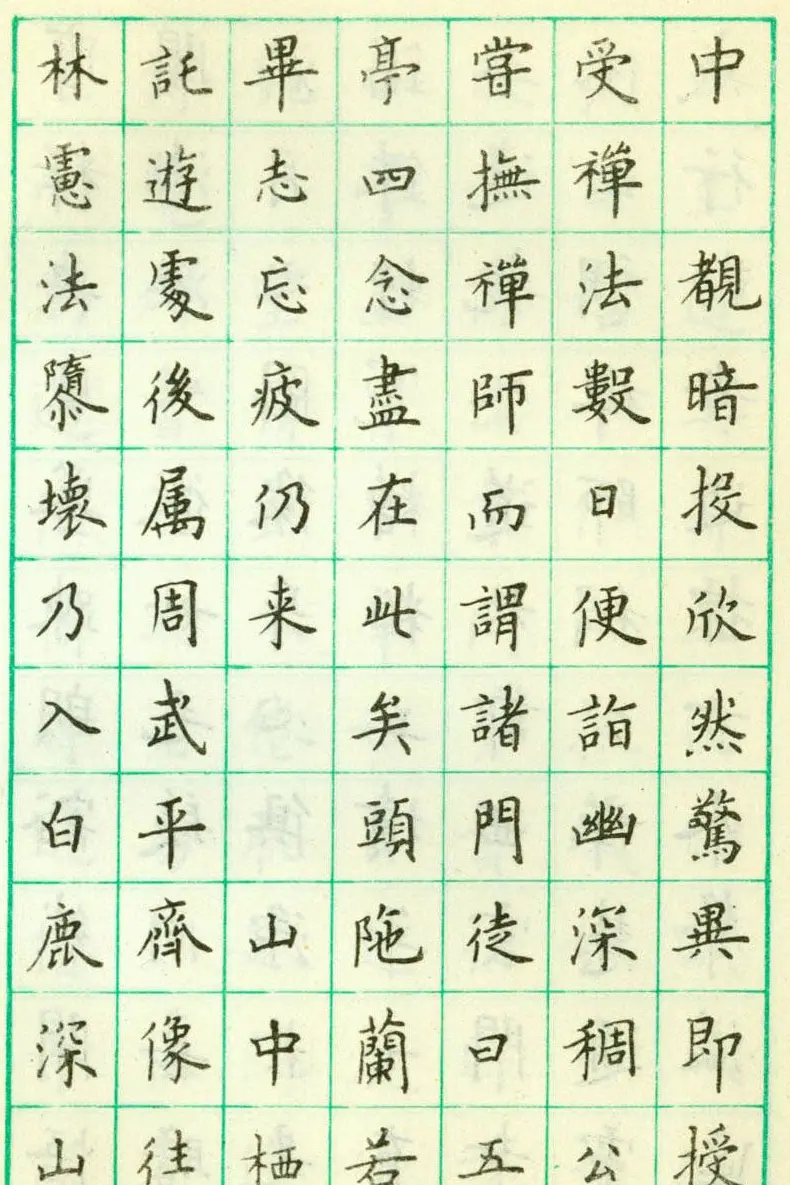 中覩暗投欣然驚異即授
受禪法數日便詣幽深稠公
甞撫禪師而謂諸門徒曰五
亭四念盡在此矣頭陁蘭若
畢志忘疲仍来山中栖
託遊處後属周武平齊像往
林慮法隳壞乃入白鹿深山